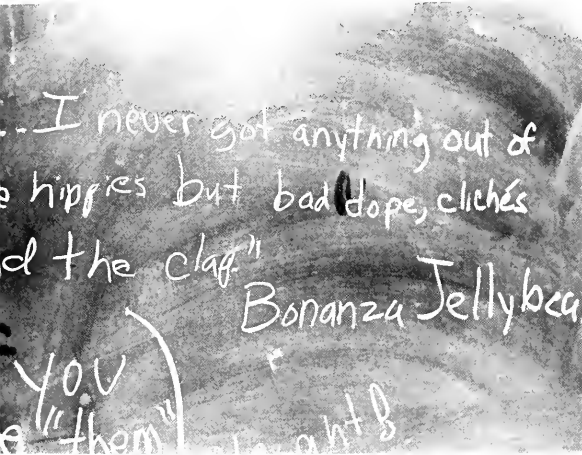 ...I never got anything out of
e hippies but bad dope, clichés
d the clap."
Bonanza Jellybea
YOU
e "them"